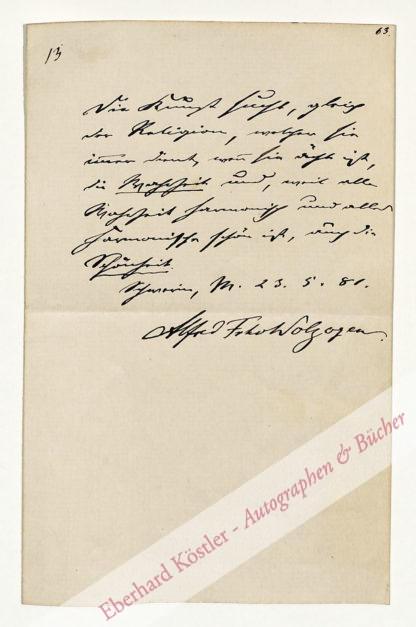 63.
13
Die Kunst sucht, gleich
der Religion, welcher sie
immer dient, wenn sie ächt ist,
die Wahrheit und, weil alle
Wahrheit harmonisch und alles
Harmonische schön ist, auch die
Schönheit.
Schwerin, M. 23. 5. 81.
Alfred Frhr Wolzogen.
Eberhard Köstler - Autographen & Bücher